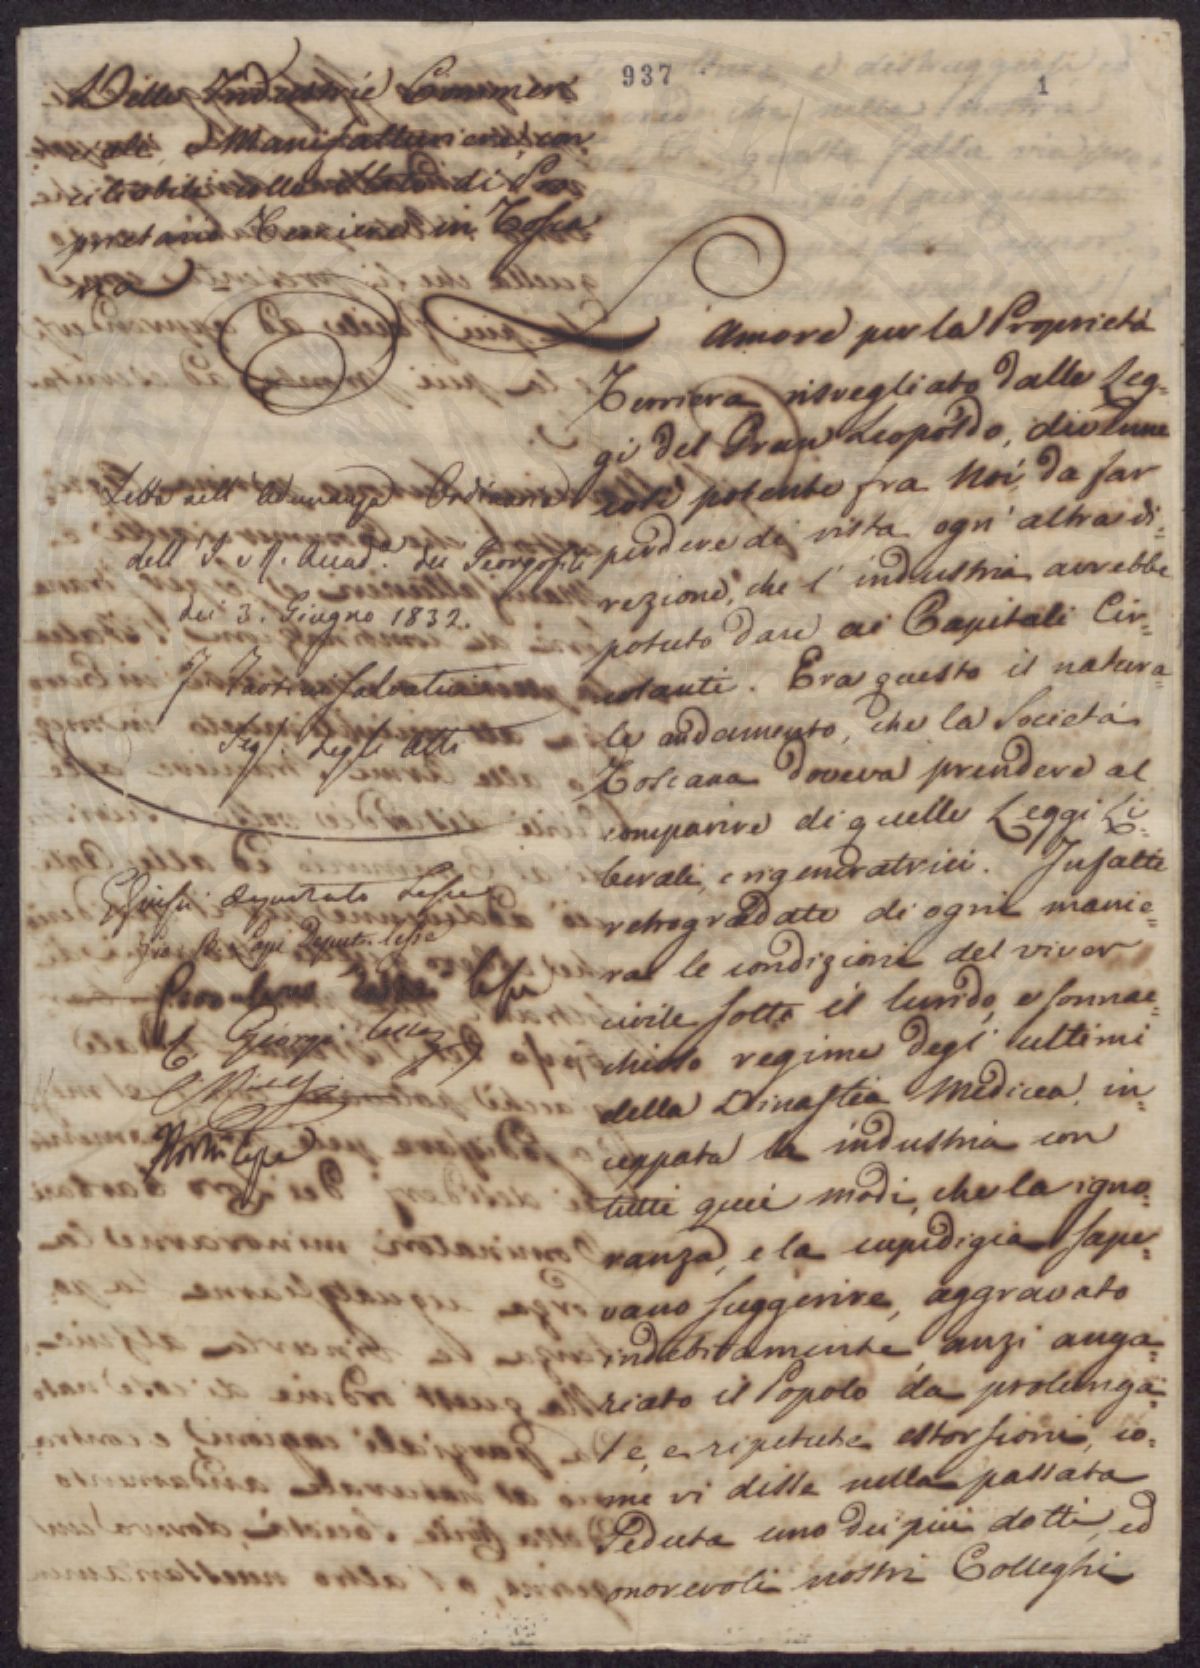 937
1
Delle Industrie Commer
ciali, e Manifatturiere con
ciliabili collo stato di Pro
prietario Terriere in Tosca
na
Letta nell'Adunanza Ordinaria
dell'I. e R. Accad.ª dei Georgofili
dei 3. Giugno 1832.
Seg. degli Atti
Amore per la Proprietà
Terriera risvegliato dalle Leg=
gi del Gran Leopoldo, divenne
così potente fra Noi, da far
perdere di vista ogn'altra di=
rezione, che l'industria avrebbe
potuto dare ai Capitali Cir=
colanti. Era questo il natura=
le andamento, che la Società
Toscana doveva prendere al
comparire di quelle Leggi Li=
berali, e rigeneratrici. Infatti
retrogradate di ogni manie=
ra le condizioni del viver
civile sotto il lurido, e sonnac=
chioso regime degl'ultimi
della Dinastia Medicea, in=
ceppata la industria con
tutti quei modi, che la igno=
ranza, e la cupidigia sape=
vano suggerire, aggravato
indebitamente anzi anga=
riato il Popolo da prolunga=
te, e ripetute estorsioni, co=
me vi disse nella passata
Seduta uno dei più dotti, ed
onorevoli nostri Colleghi